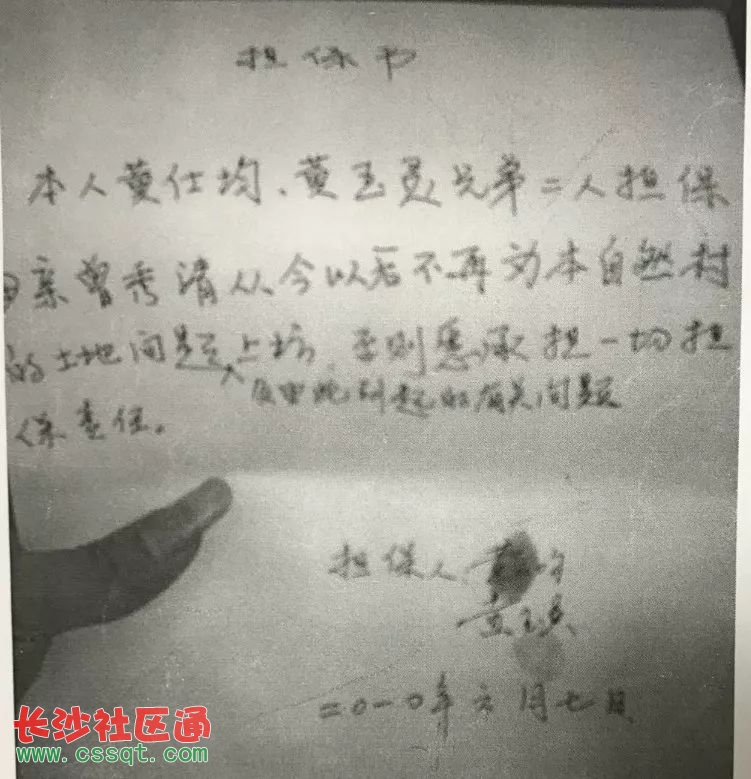 担保书
本人黄仕均、黄玉灵兄弟二人担保
母亲曾秀清从今以后不再为本自然村
的土地问题上访,否则愿承担一切担
及由此引起的有关问题
保责任。
担保人:黄 均
黄玉灵
二〇一〇年六月七日
长沙社区通
www.cssqt.com